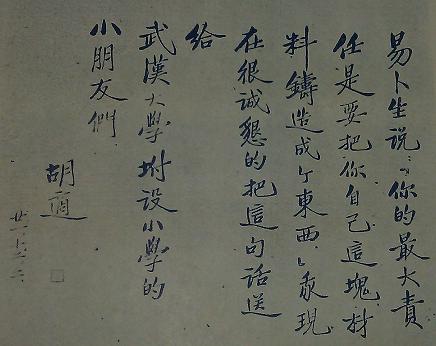 易卜生説:「你的最大責
任是要把你自己這塊材
料鑄造成个東西」我現
在很誠懇的把這句話送
給
武漢大學坿設小學的
小朋友們
胡適